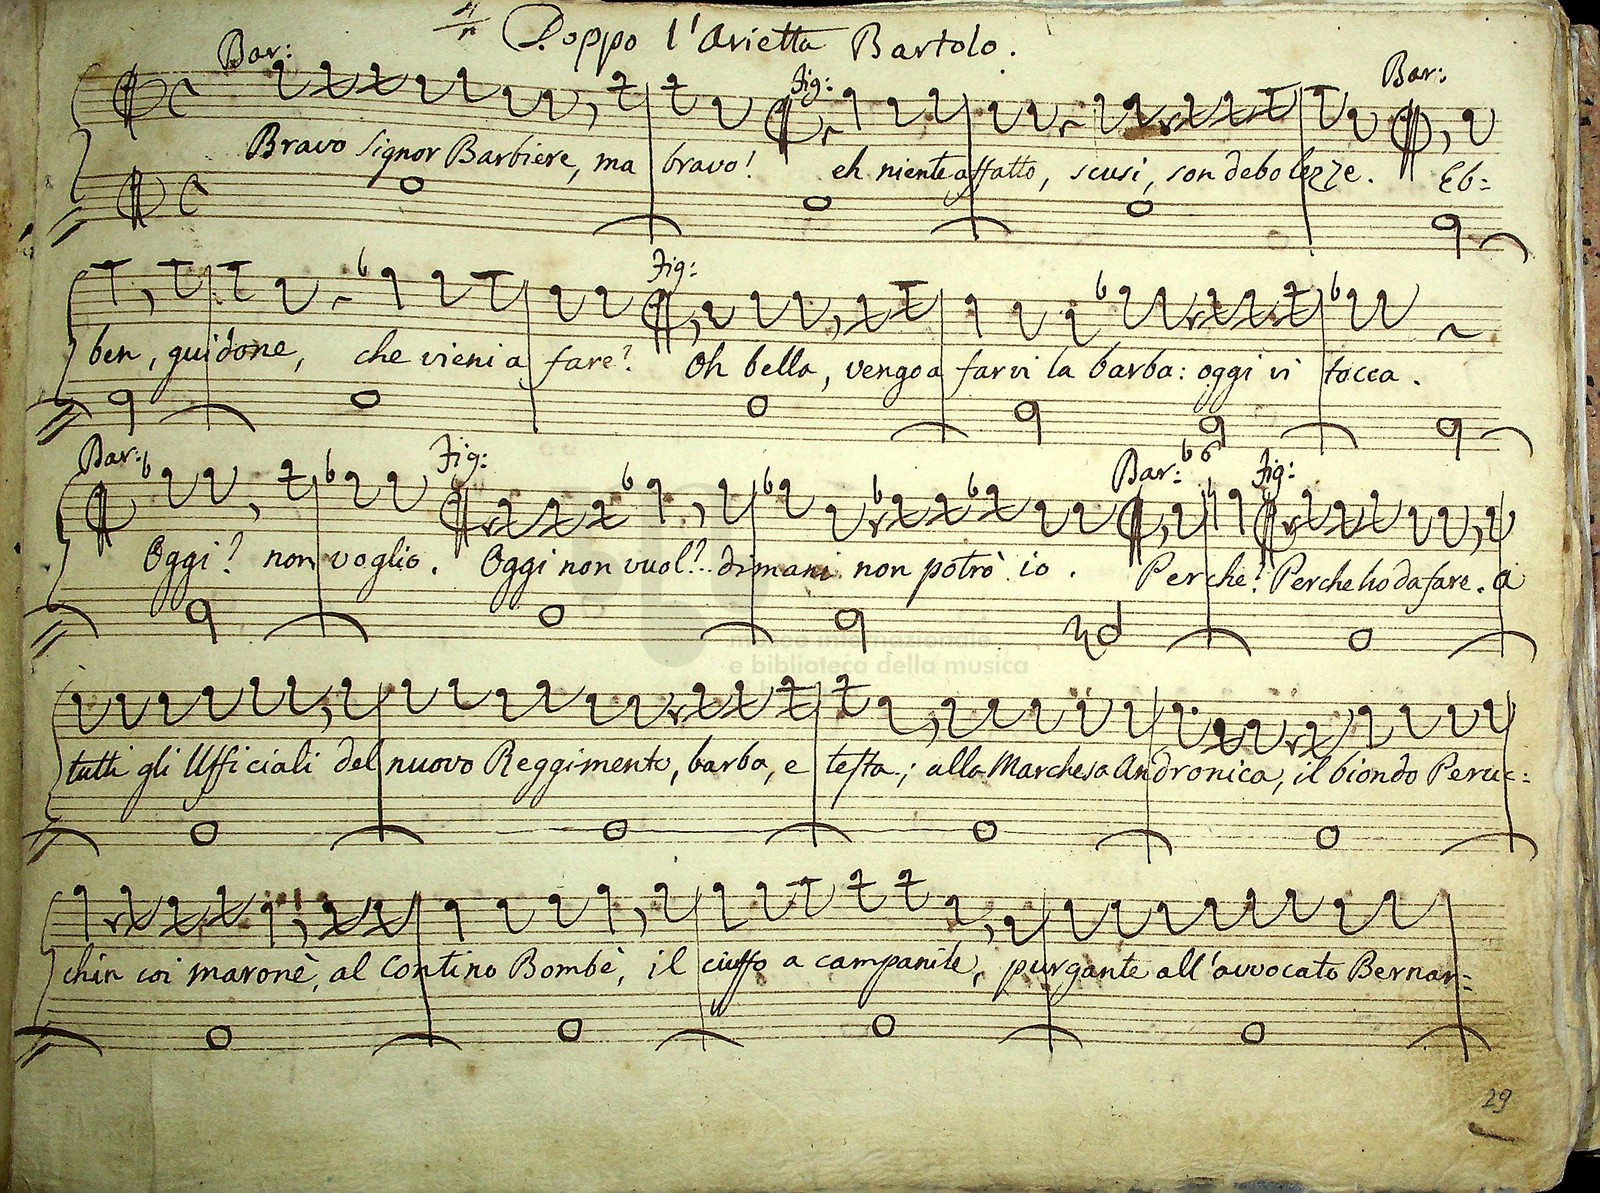 Doppo l'Arietta Bartolo.
Bar: Fig: Bar:
Bravo Signor Barbiere, ma bravo! eh niente affatto, scusi, son debolezze. Eb=
Fig:
ben, guidone, che vieni a fare? Oh bella, vengo a farvi la barba: oggi vi tocca.
Bar: Fig: Bar: Fig:
Oggi? non voglio. Oggi non vuol?.. dimani non potrò io. Perchè? Perche ho da fare. a
museo internazionale
e biblioteca della musica
tutti gli Ufficiali del nuovo Reggimento, barba, e testa; alla Marchesa Andronica, il biondo Peruc=
chin coi maronè, al Contino Bombè, il ciuffo a campanile, purgante all'avvocato Bernar=
29